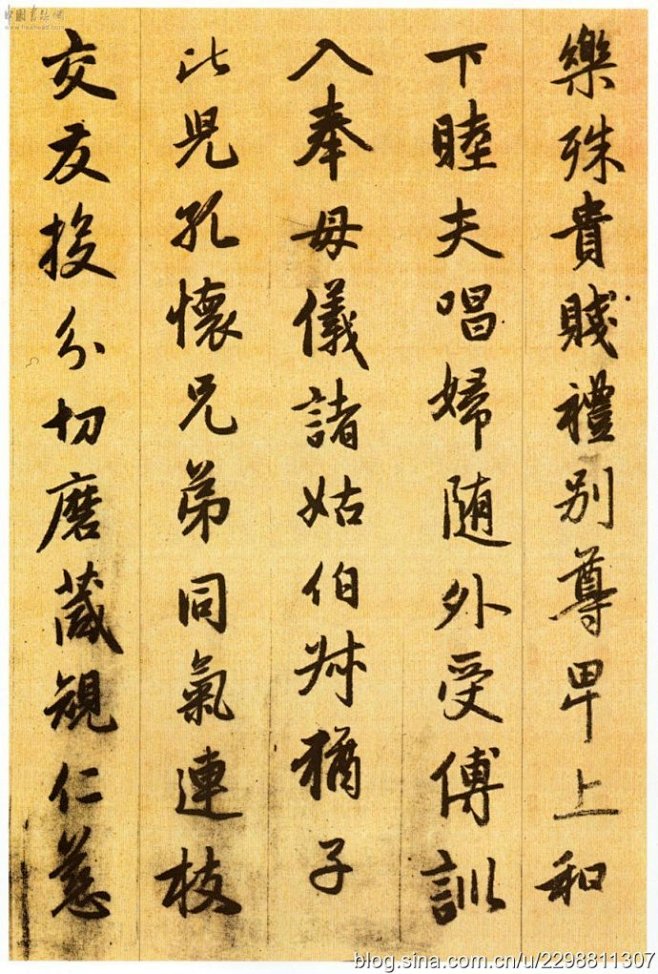 樂殊貴賤禮別尊卑上和
下睦夫唱婦随外受傅訓
入奉母儀諸姑伯叔猶子
比兒孔懷兄弟同氣連枝
交友投分切磨箴規仁慈
blog.sina.com.cn/u/2298811307